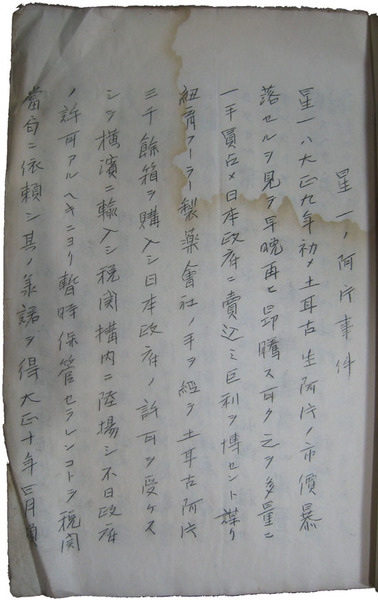 星一ノ阿片事件
星一ハ大正九年初メ土耳古生阿片ノ市價暴
落セルヲ見テ早晩再ヒ昂騰ス可ク之ヲ多量ニ
一手買占メ日本政府ニ賣込ミ巨利ヲ博セント謀リ
紐育フーラー製薬會社ノ手ヲ經テ土耳古阿片
三千餘箱ヲ購入シ日本政府ノ許可ヲ受ケス
シテ横濱ニ輸入シ税関構内ニ陸揚シ不日政府
ノ許可アルヘキニヨリ暫時保管セラレンコトヲ税関
當局ニ依頼シ其ノ承諾ヲ得大正十年三月頃